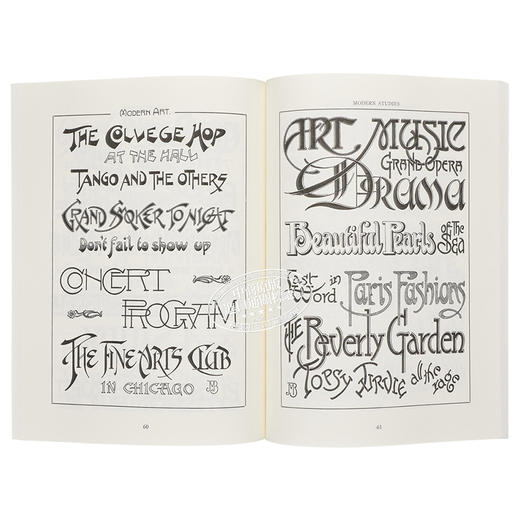 MODERN ART.
THE COLLEGE HOP
AT THE HALL
TANGO AND THE OTHERS
GRAND SMOKER TO NIGHT
Don't fail to show up
CONCERT
PROGRAM
THE FINE ARTS CLUB
IN CHICAGO
60
MODERN STUDIES
ART MUSIC
GRAND OPERA
DRAMA
Beautiful Pearls of the SEA
Last Word in Paris Fashions
THE Beverly Garden
TOPSY TURVIE all the rage
61